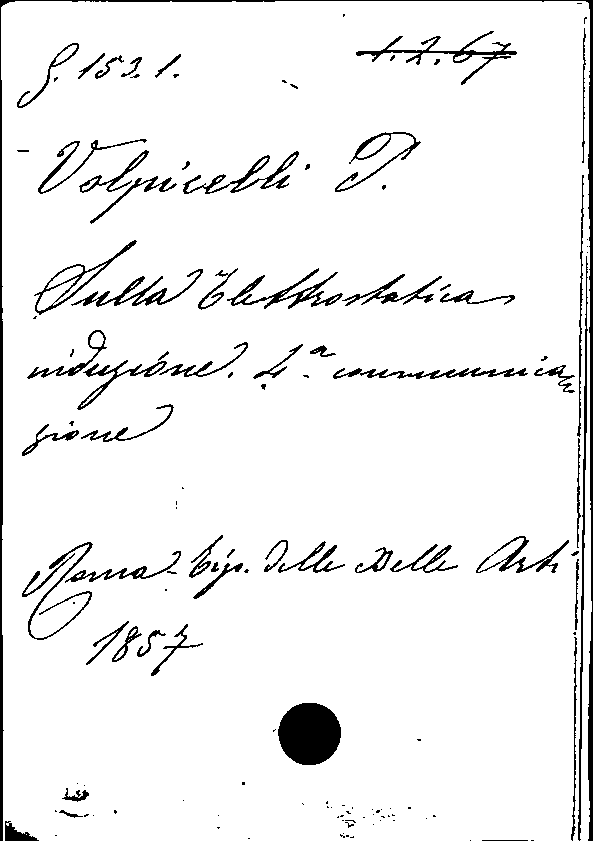 G. 153.1.
1.2.67
Volpicelli P.
Sulla Elettrostatica
induzione. 4.ª comunica=
zione
Roma - Tip. delle Belle Arti
1857